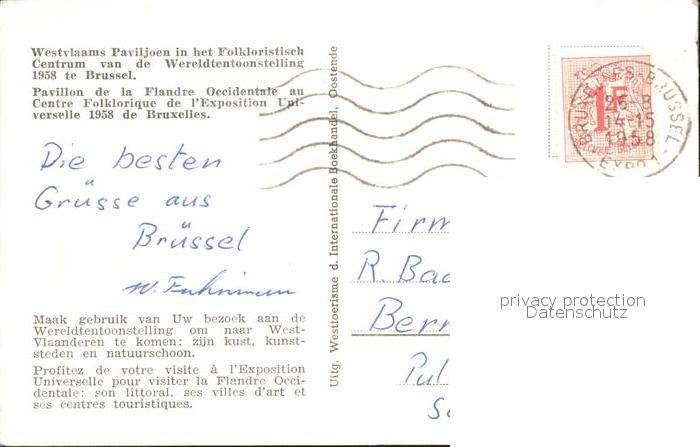 Westvlaams Paviljoen in het Folkloristisch
Centrum van de Wereldtentoonstelling
1958 te Brussel.
Pavillon de la Flandre Occidentale au
Centre Folklorique de l'Exposition Uni-
verselle 1958 de Bruxelles.
Die besten
Grüsse aus
Brüssel
Maak gebruik van Uw bezoek aan de
Wereldtentoonstelling om naar West-
Vlaanderen te komen: zijn kust, kunst-
steden en natuurschoon.
Profitez de votre visite à l'Exposition
Universelle pour visiter la Flandre Occi-
dentale: son littoral, ses villes d'art et
ses centres touristiques.
Uitg. Westtoerisme d. Internationale Boekhandel, Oostende
1F
BRUXELLES-BRUSSEL
26-8
14-15
1958
EXPO 1
Firm
R. Bac
Bern
Pul
privacy protection
Datenschutz